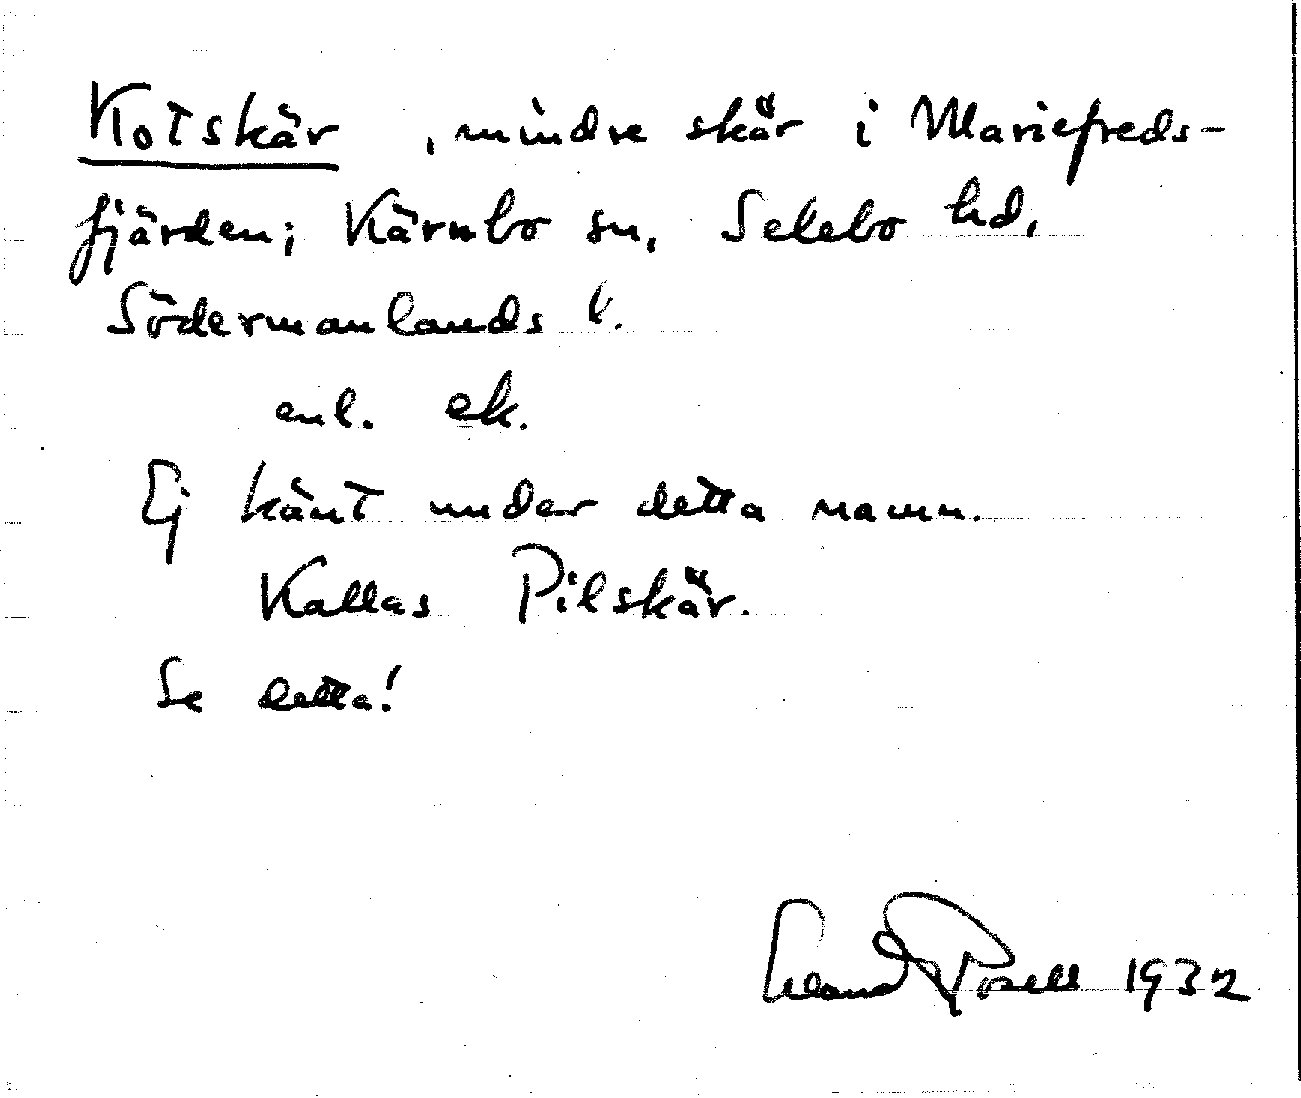 Kotskär, mindre skär i Mariefreds-
fjärden; Kärnbo sn, Selebo hd,
Södermanlands l.
enl. ek.
Ej känt under detta namn.
Kallas Pilskär.
Se detta!
Erland Rosell 1932